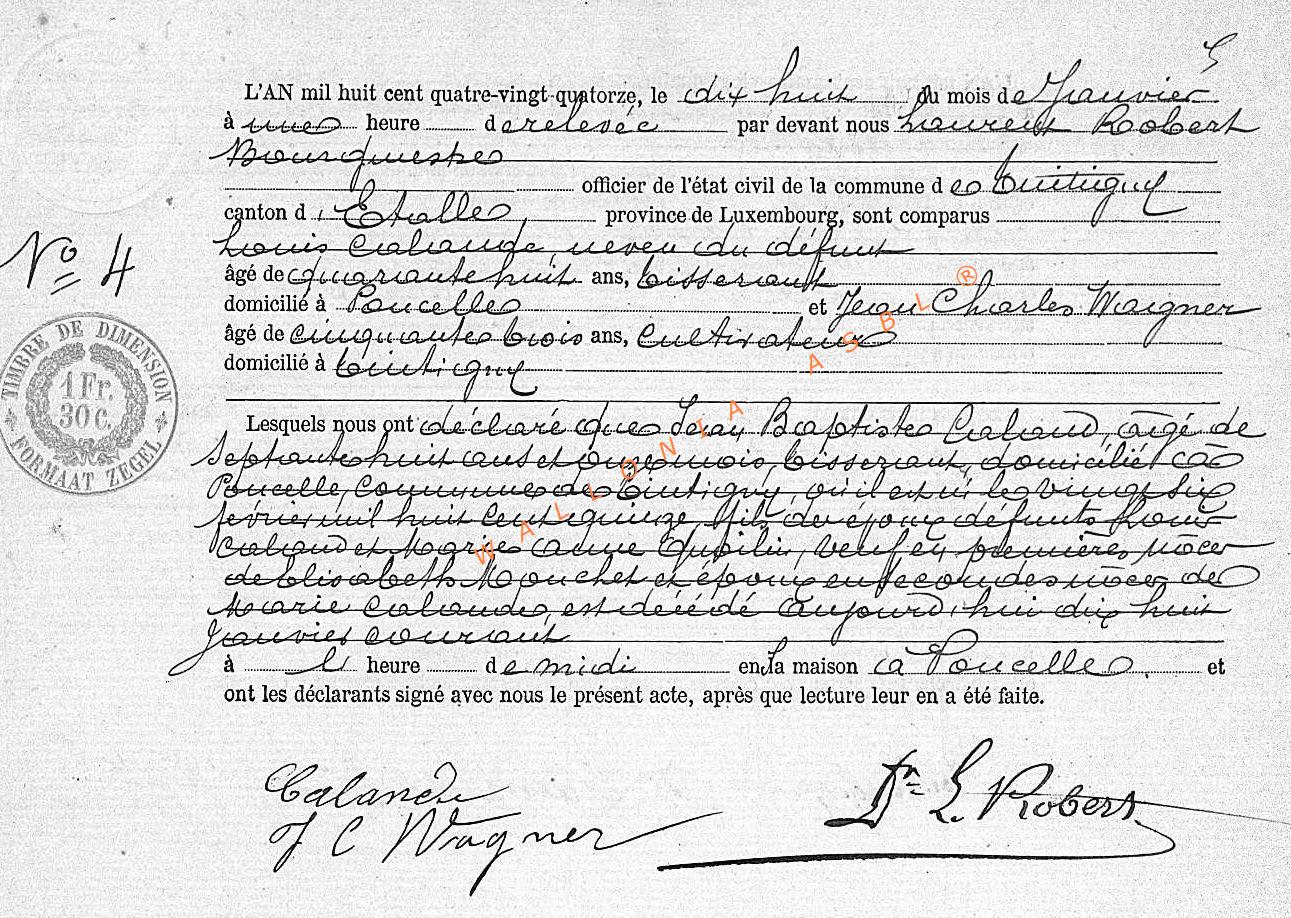 5
L'AN mil huit cent quatre-vingt-quatorze, le dix huit du mois de Janvier
à une heure de relevée par devant nous Laurent Robert
Bourgmestre
officier de l'état civil de la commune de Tintigny
canton d'Etalle, province de Luxembourg, sont comparus
Louis Calande, neveu du défunt
N° 4
âgé de quarante huit ans, tisserant
domicilié à Poncelle et Jean Charles Waigner
âgé de cinquante trois ans, cultivateur
domicilié à Tintigny
TIMBRE DE DIMENSION
1 Fr.
30 C.
FORMAAT ZEGEL
Lesquels nous ont déclaré que Jean Baptiste Caland, âgé de
septante huit ans et onze mois, tisserant, domicilié à
Poncelle, commune de Tintigny, où il est né le vingt six
février mil huit cent quinze, fils des époux défunts Louis
Caland et Marie Anne, veuf en premières noces
de Elisabeth Mouchet et époux en secondes noces de
Marie Calande, est décédé aujourd'hui dix huit
Janvier courant
à l' heure de midi en la maison à Poncelle, et
ont les déclarants signé avec nous le présent acte, après que lecture leur en a été faite.
WALLONIA ASBL ®
Calande
J C Wagner
Dr L. Robert